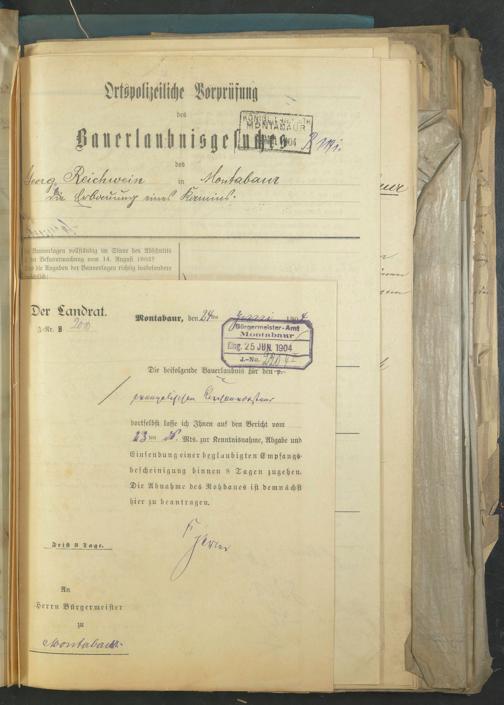 Ortspolizeiliche Vorprüfung
des
Bauerlaubnisgesuches
des
Georg Reichwein in Montabaur
die Erbauung eines Kamins.
MONTABAUR
1904
Bauvorlagen vollständig im Sinne des Abschnitts
der Bekanntmachung vom 14. August 1903?
die Angaben der Bauvorlagen richtig insbesondere
Der Landrat.
J.-Nr. B
Montabaur, den 24ten Juni 1904
Bürgermeister-Amt
Montabaur
Eing. 25 JUN. 1904
J.-No.
Die beifolgende Bauerlaubnis für den
evangelischen Kirchenvorstand
dortselbst lasse ich Ihnen auf den Bericht vom
23ten ds. Mts. zur Kenntnisnahme, Abgabe und
Einsendung einer beglaubigten Empfangs-
bescheinigung binnen 8 Tagen zugehen.
Die Abnahme des Rohbaues ist demnächst
hier zu beantragen.
Frist 8 Tage.
An
Herrn Bürgermeister
zu
Montabaur.